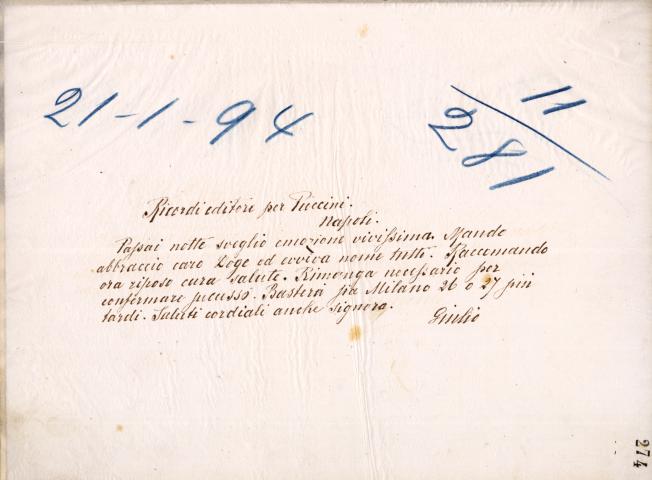 21-1-94
11/281
Ricordi editori per Puccini.
Napoli.
Passai notte sveglio emozione vivissima. Mando
abbraccio caro Doge ed evviva nome tutti. Raccomando
ora riposo cura salute. Rimanga necessario per
confermare successo. Basterà pr Milano 26 o 27 più
tardi. Saluti cordiali anche signora.
Giulio
274